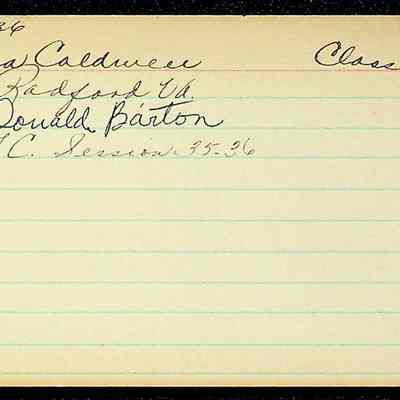 36
a Caldwell Class
Radford Va.
Donald Barton
C. Session 35-36